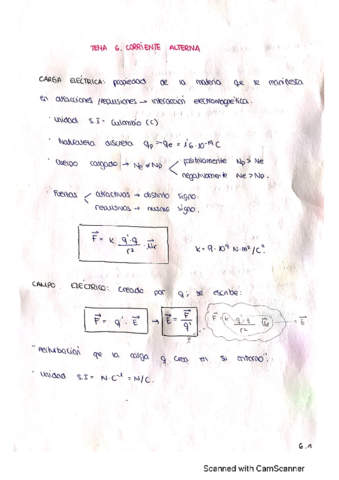 TEMA 6. CORRIENTE ALTERNA
CARGA ELÉCTRICA: propiedad de la materia que se manifiesta
en atracciones/repulsiones → interacción electromagnética.
· Unidad S.I = Culombio (C)
· Naturaleza discreta qp = qe = 1'6·10⁻¹⁹ C
· Cuerpo cargado → Ne ≠ Np < positivamente Np > Ne
negativamente Ne > Np.
· Fuerzas < atractivas → distinto signo.
repulsivas → mismo signo.
F⃗ = k q'·q / r² · u⃗r   k = 9·10⁹ N·m²/C².
CAMPO ELÉCTRICO: creado por q, se escribe:
F⃗ = q'·E⃗ → E⃗ = F⃗ / q'   F⃗ = k q'·q / r² u⃗r = E
"Perturbación que la carga q crea en su entorno".
· Unidad S.I = N·C⁻¹ = N/C.
6.1
Scanned with CamScanner